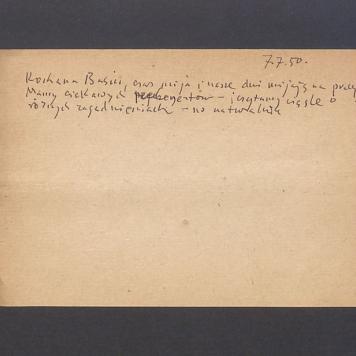 7.7.50.
Kochana Basiu, czas mija i nasze dni mijają na pracy
Mamy ciekawych – i czytamy ciągle o
różnych zagadnieniach – no naturalnie